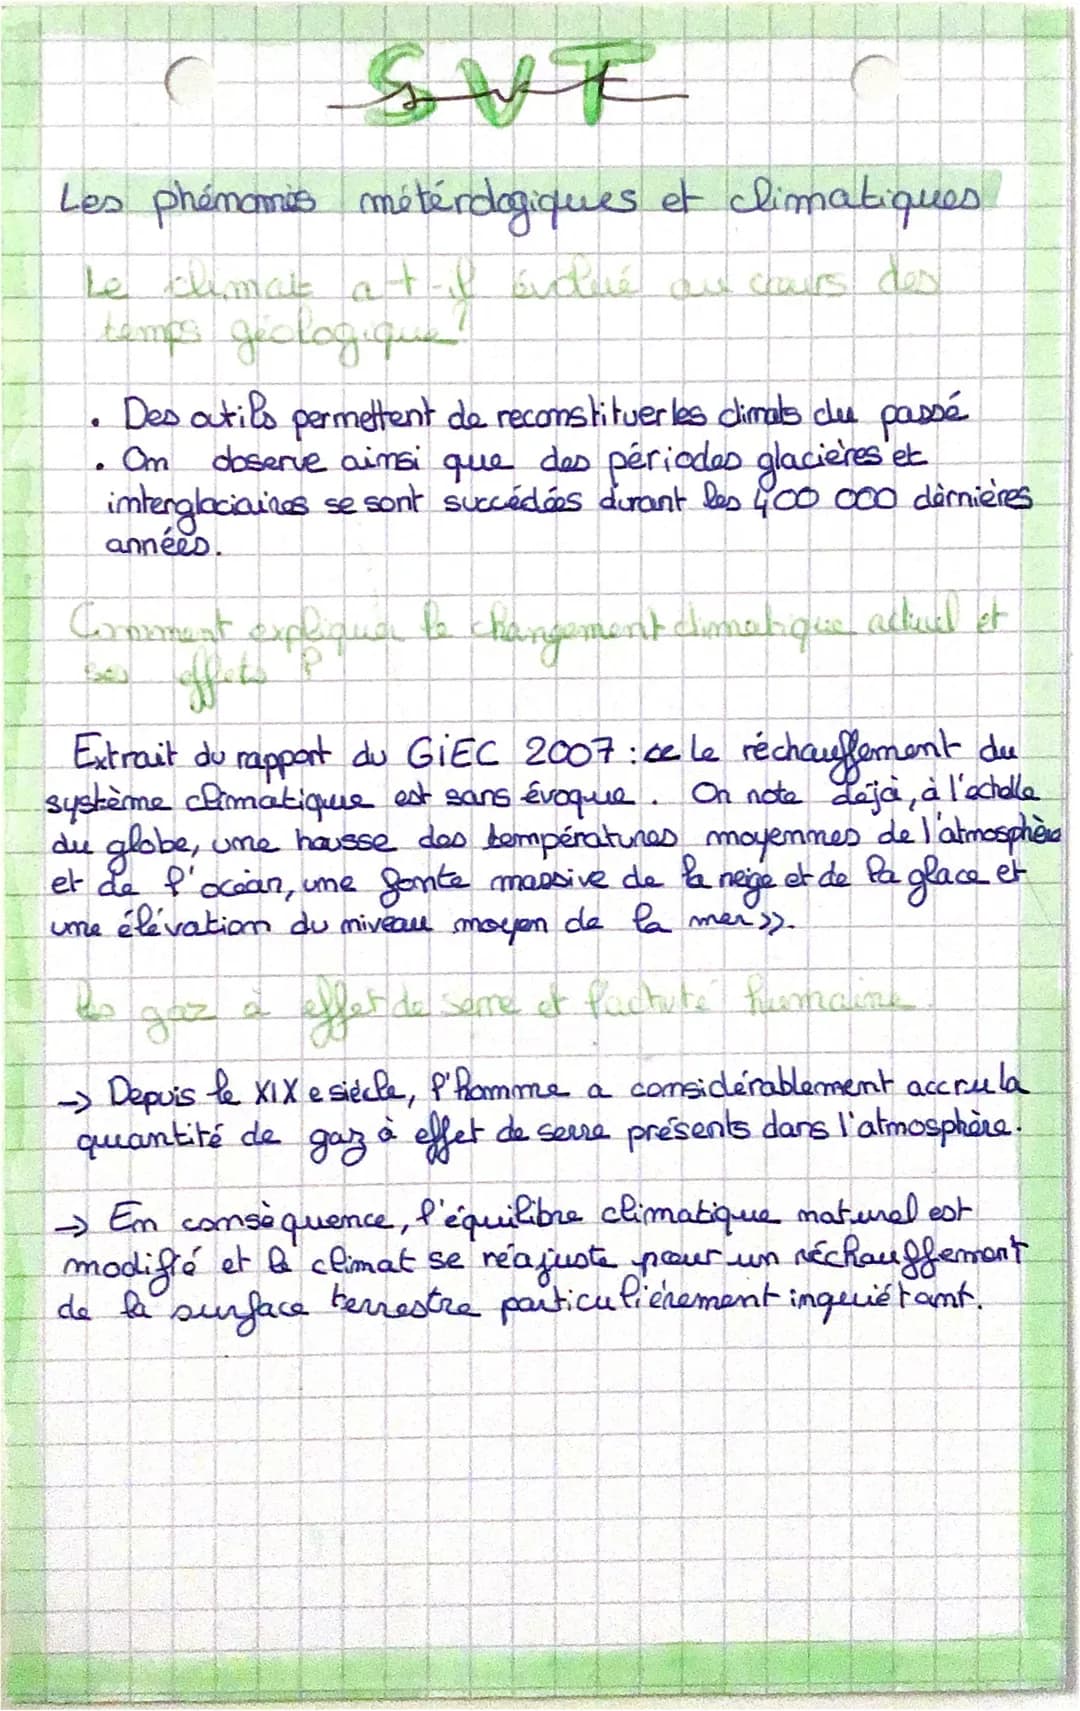 SVT
svt
Les phénomnis météréologiques et climatiques
Le climat a-t-il évolué au cours des
temps géologique?
. Des outils permettent de reconstituer les climats du passé
. On observe ainsi que des périodes glacières et
interglaciaires se sont succédées durant les 400 000 dernières
années.
Comment expliquer le changement climatique actuel et
ses effets ?
Extrait du rapport du GiEC 2007 : << Le réchauffement du
système climatique est sans évoque. On note déjà, à l'échelle
du globe, une hausse des températures moyennes de l'atmosphère
et de l'océan, une fonte massive de la neige et de la glace et
une élévation du niveau moyen de la mer >>.
Les gaz à effet de serre et l'activité humaine.
→ Depuis le XIX e siècle, l'homme a considérablement accru la
quantité de gaz à effet de serre présents dans l'atmosphère.
→ En consèquence, l'équilibre climatique naturel est
modifié et le climat se réajuste pour un réchauffement
de la surface terrestre particulièrement inquiétant.